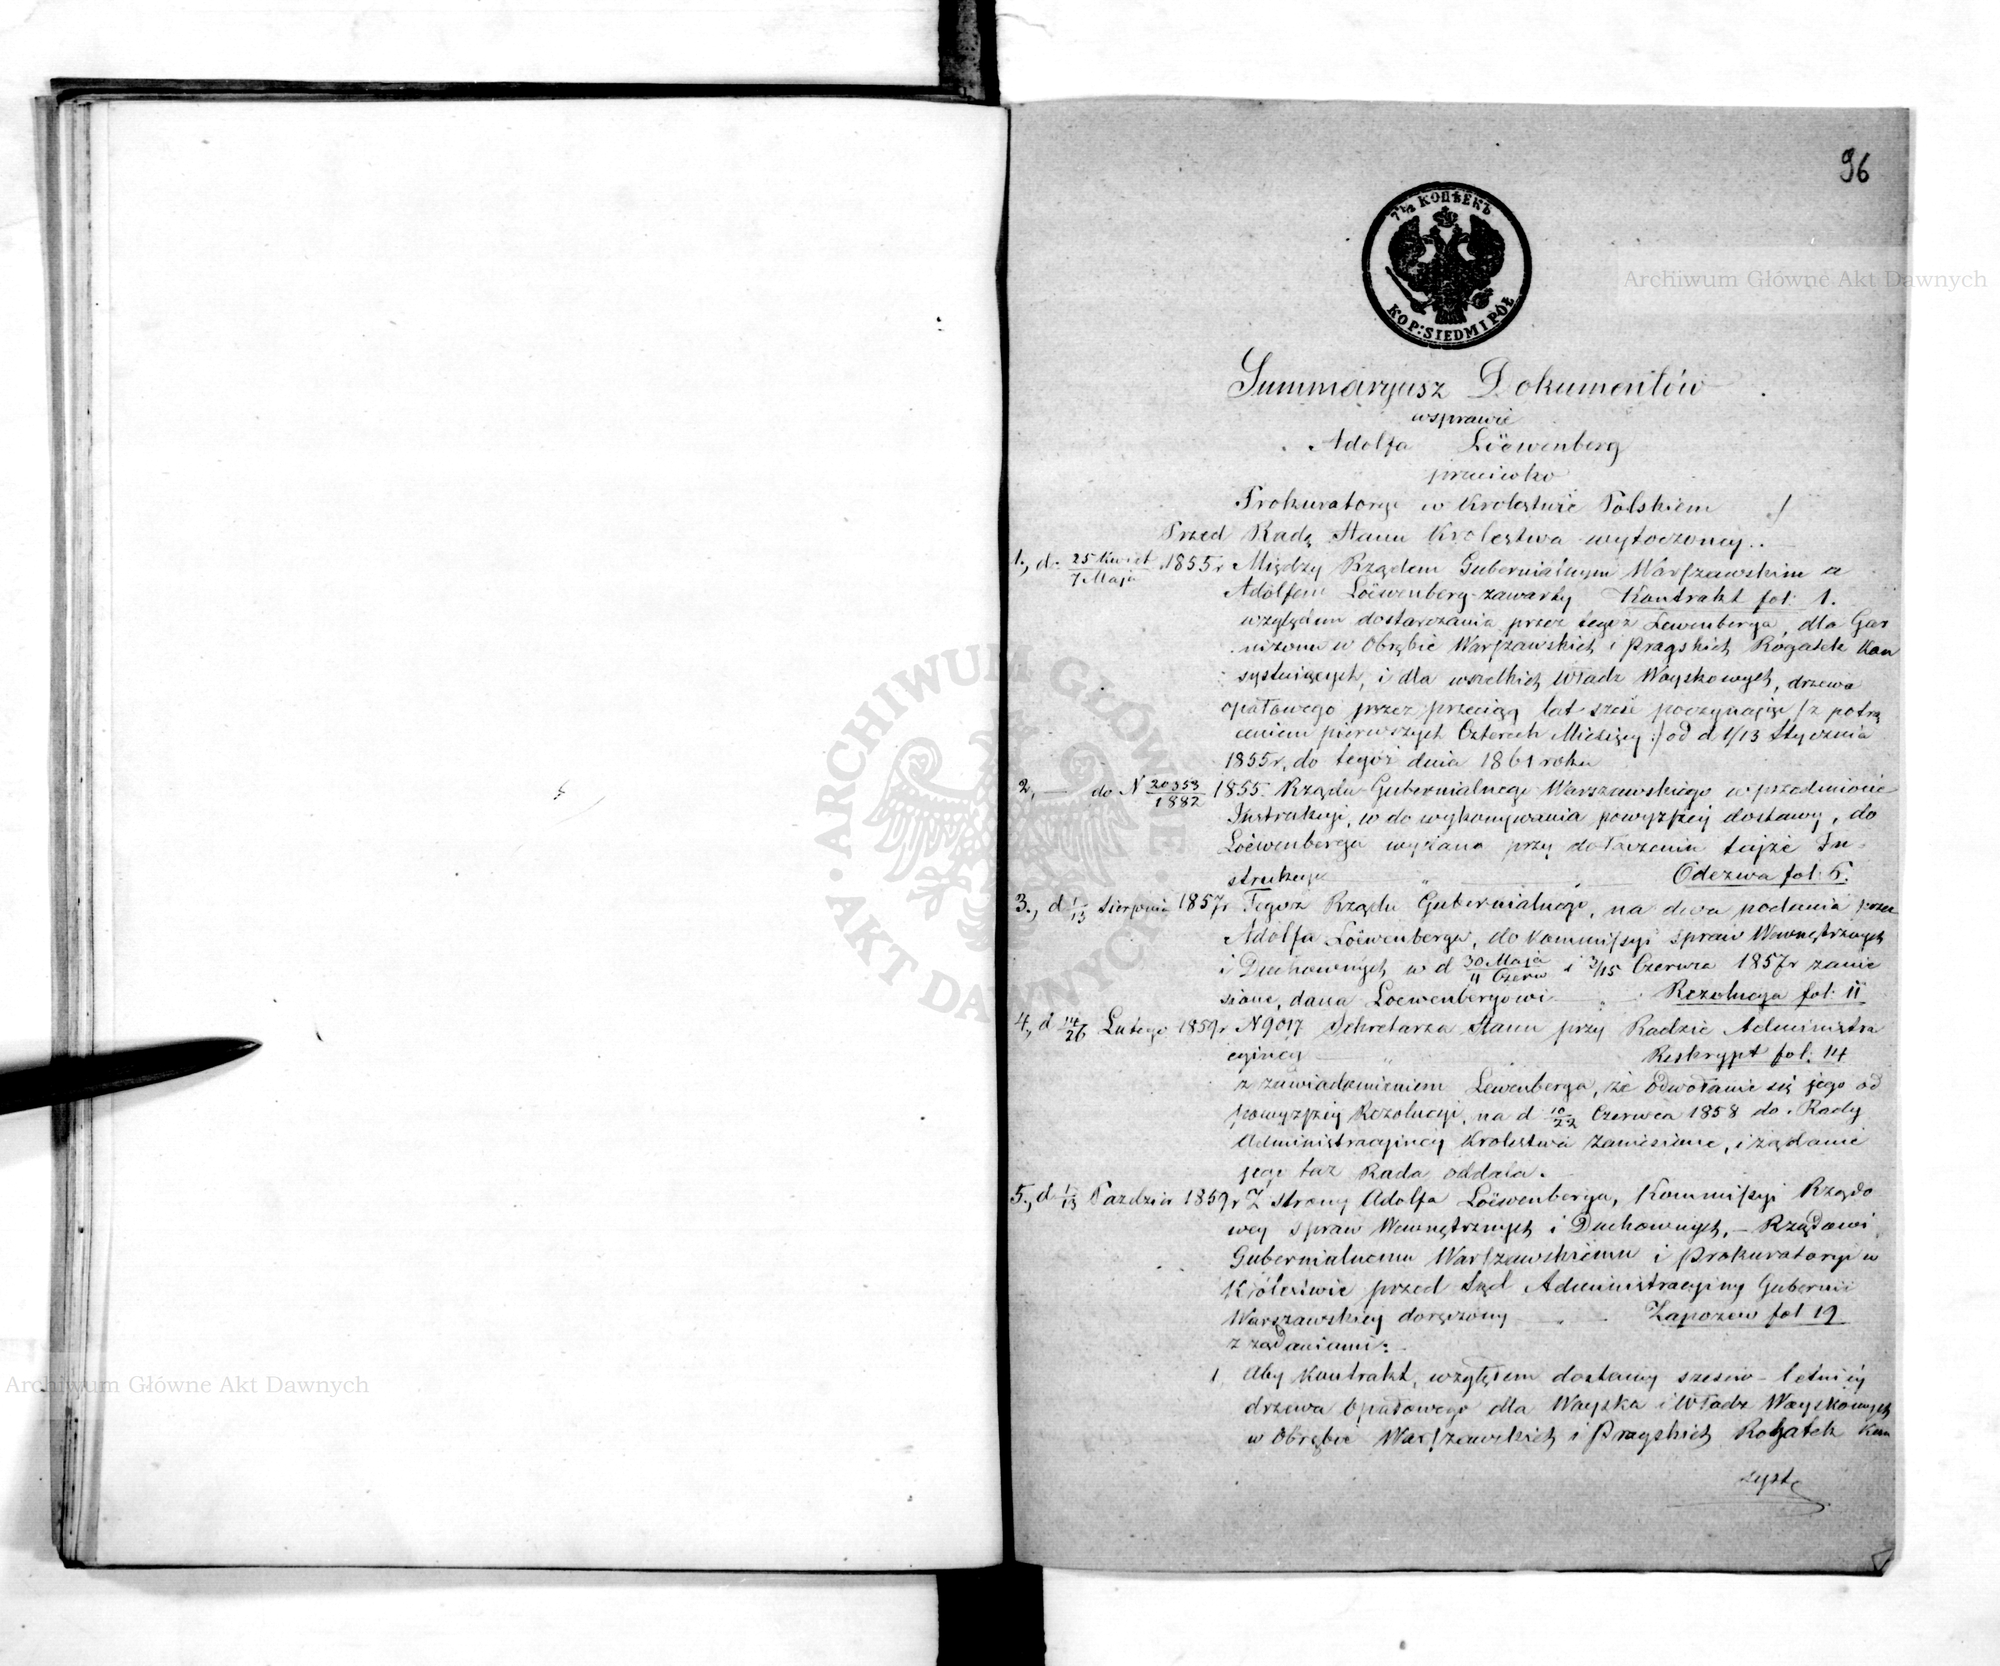 96
7½ КОПѢЕКЪ
KOP: SIEDM I PÓŁ
Archiwum Główne Akt Dawnych
Summaryusz Dokumentów
wsprawie
Adolfa Löewenberg
przeciwko
Prokuratoryi w Krolestwie Polskiem
Przed Radą Stanu Krolestwa wytoczoney.
1., d. 25 Kwiet/7 Maja 1855 r Między Rządem Gubernialnym Warszawskim a
Adolfem Löewenberg zawarty Kontrakt fol: 1.
względem dostarczania przez tegoż Lewenberga, dla Gar
nizonu w Obrębie Warszawskich i Pragskich Rogatek Kon
systuiących, i dla wszelkich Władz Woyskowych, drzewa
opałowego przez przeciąg lat sześć poczynając /: z potrą
ceniem pierwszych Czterech Miesięcy :/ od d 1/13 Stycznia
1855 r, do tegoż dnia 1861 roku
2, — do N 20353/1882 1855. Rządu Gubernialnego Warszawskiego w przedmiocie
Instrukcyi, w do wykonywania powyższey dostawy, do
Löewenberga wydana przy dołączeniu tejże In-
strukcyi Odezwa fol: 6.
3., d 1/13 Sierpnia 1857 r Tegoż Rządu Gubernialnego, na dwa podania przez
Adolfa Löewenberga, do Kommissyi Spraw Wewnętrznych
i Duchownych w d 30 Maja/11 Czerw i 3/15 Czerwca 1857 r zanie
sione, dana Loewenbergowi Rezolucya fol: 11
4., d 14/26 Lutego 1859 r N 9017 Sekretarza Stanu przy Radzie Administra
cyiney Reskrypt fol: 14
z zawiadomieniem Lewenberga, że odwołanie się jego od
powyższey Rezolucyi, na d 10/22 Czerwca 1858 do Rady
Administracyiney Krolestwa zaniesione, i żądanie
jego taż Rada oddala.
5., d 1/13 Pazdzier 1859 r Z strony Adolfa Löewenberga, Kommissyi Rządo
wey Spraw Wewnętrznych i Duchownych, — Rządowi
Gubernialnemu Warszawskiemu i Prokuratoryi w
Królestwie przed Sąd Administracyiny Gubernii
Warszawskiey doręczony Zapozew fol 19
z żądaniami:
1. Aby Kontrakt, względem dostawy sześcio-letniey
drzewa Opałowego dla Woyska i Władz Woyskowych
w Obrębie Warszawskich i Pragskich Rogatek Kon
syst
ARCHIWUM GŁÓWNE AKT DAWNYCH
Archiwum Główne Akt Dawnych